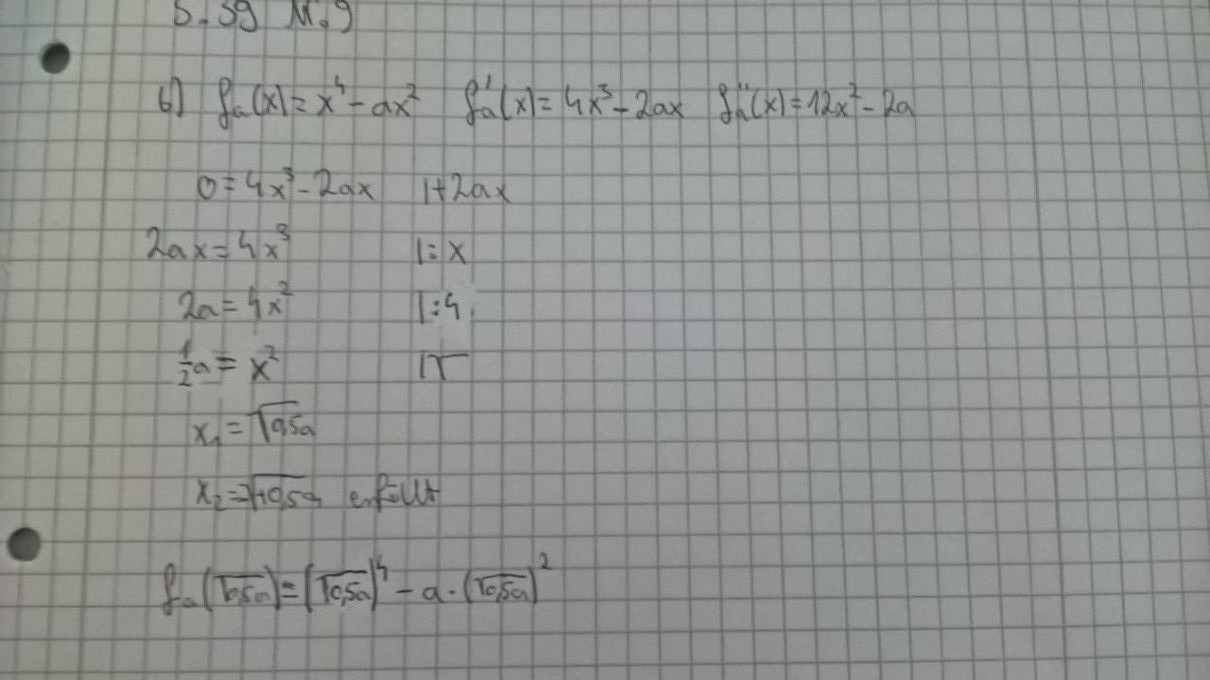 S. 59 Nr. 9
b) fₐ(x) = x⁴ - ax² fₐ'(x) = 4x³ - 2ax fₐ''(x) = 12x² - 2a
0 = 4x³ - 2ax |+2ax
2ax = 4x³ |:x
2a = 4x² |:4
½a = x² |√
x₁ = √0,5a
erfüllt
fₐ(√0,5a) = (√0,5a)⁴ - a · (√0,5a)²